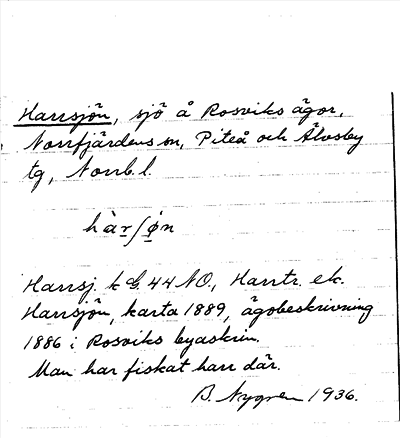 Harrsjön, sjö å Rosviks ägor,
Norrfjärdens sn, Piteå och Älvsby
tg, Norrb. l.
hàr∫ø̣n
Harrsj. k G. 44 NO., Harrtr. ek.
Harrsjön, karta 1889, ägobeskrivning
1886 i Rosviks byaskrin.
Man har fiskat harr där.
B. Nygren 1936.